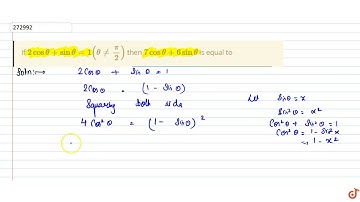 272992
If 2 cos θ + sin θ = 1 (θ ≠ π/2) then 7 cos θ + 6 sin θ is equal to
Soln:→ 2 Cos θ + Sin θ = 1
2 Cos θ = (1 - Sin θ)
Squaring both sides
4 Cos² θ = (1 - Sin θ)²
Let Sin θ = x
Sin² θ = x²
Cos² θ + Sin² θ = 1
Cos² θ = 1 - Sin² x
→ 1 - x²